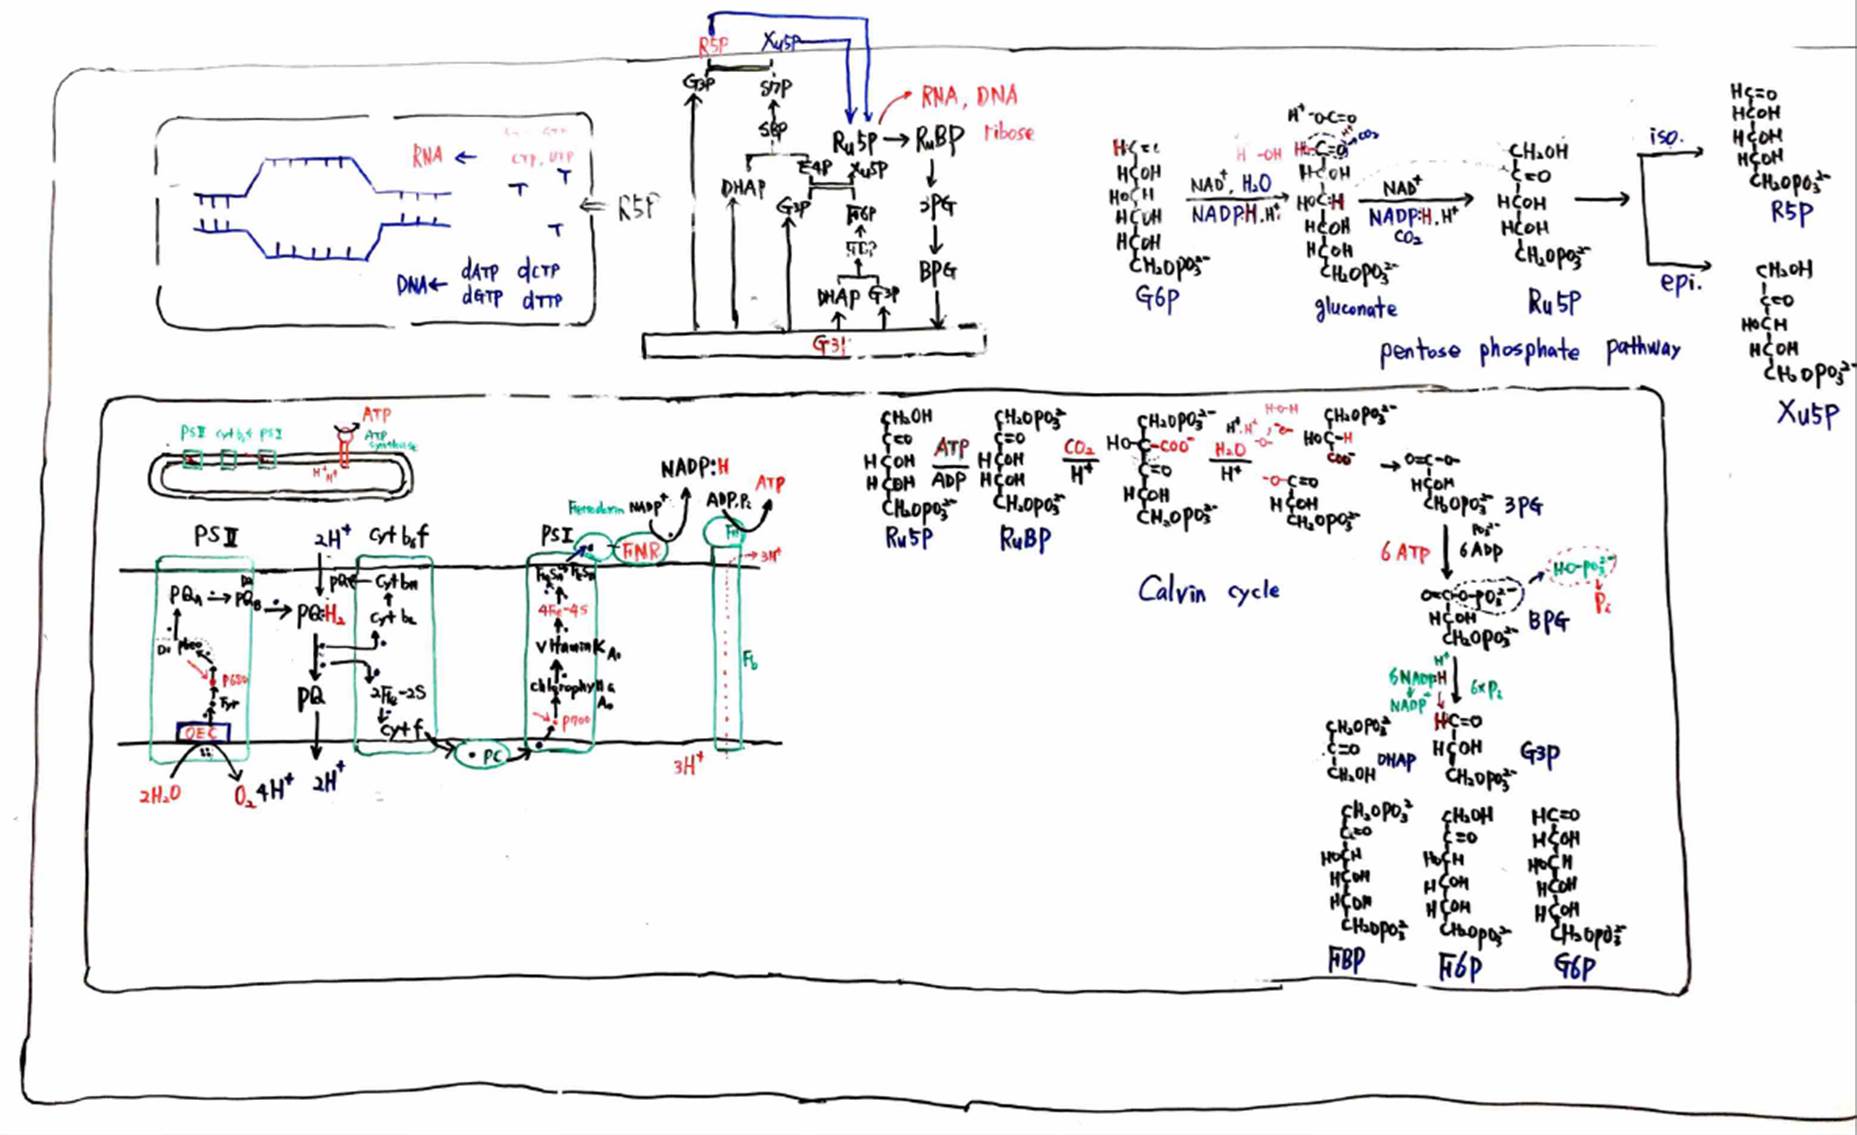 R5P Xu5P
G3P S7P
SBP
Ru5P → RuBP
RNA, DNA
ribose
E4P Xu5P
DHAP
G3P F6P
3PG
BPG
DHAP G3P
RNA ←
CTP, UTP
T T
T
DNA ← dATP dCTP
dGTP dTTP
⇐ R5P
HCOH
HOCH
HCOH
HCOH
CH₂OPO₃²⁻
G6P
H -OH
NAD⁺, H₂O
NADP:H, H⁺
H⁺ -O-C=O
CO₂
HCOH
HOC-H
HCOH
HCOH
CH₂OPO₃²⁻
gluconate
NAD⁺
NADP:H, H⁺
CO₂
CH₂OH
C=O
HCOH
HCOH
CH₂OPO₃²⁻
Ru5P
iso.
epi.
HC=O
HCOH
HCOH
HCOH
CH₂OPO₃²⁻
R5P
CH₂OH
C=O
HOCH
HCOH
CH₂OPO₃²⁻
Xu5P
pentose phosphate pathway
PSII cyt b₆f PSI
ATP
ATP
synthase
H⁺ H⁺
PSII
2H⁺
Cyt b₆f
PSI
NADP⁺
NADP:H
FNR
ADP, Pi
ATP
3H⁺
PQA → PQB → PQ:H₂
Cyt bH
Cyt bL
Pheo
P680
Tyr
OEC
PQ
2Fe-2S
Cyt f
PC
4Fe-4S
vitamin K A₁
chlorophyll a
A₀
P700
2H₂O
O₂ 4H⁺
2H⁺
3H⁺
CH₂OH
C=O
HCOH
HCOH
CH₂OPO₃²⁻
Ru5P
ATP
ADP
CH₂OPO₃²⁻
C=O
HCOH
HCOH
CH₂OPO₃²⁻
RuBP
CO₂
H⁺
CH₂OPO₃²⁻
HO-C-COO⁻
C=O
HCOH
CH₂OPO₃²⁻
H-O-H
H₂O
H⁺
CH₂OPO₃²⁻
HOC-H
COO⁻
-O-C=O
HCOH
CH₂OPO₃²⁻
O=C-O-
HCOH
CH₂OPO₃²⁻
3PG
6 ATP
6 ADP
HO-PO₃²⁻
Pi
O=C-O-PO₃²⁻
HCOH
CH₂OPO₃²⁻
BPG
Calvin cycle
H⁺
6NADP:H
NADP⁺
6×Pi
CH₂OPO₃²⁻
C=O
CH₂OH
DHAP
HC=O
HCOH
CH₂OPO₃²⁻
G3P
CH₂OPO₃²⁻
C=O
HOCH
HCOH
HCOH
CH₂OPO₃²⁻
FBP
CH₂OH
C=O
HOCH
HCOH
HCOH
CH₂OPO₃²⁻
F6P
HC=O
HCOH
HOCH
HCOH
HCOH
CH₂OPO₃²⁻
G6P